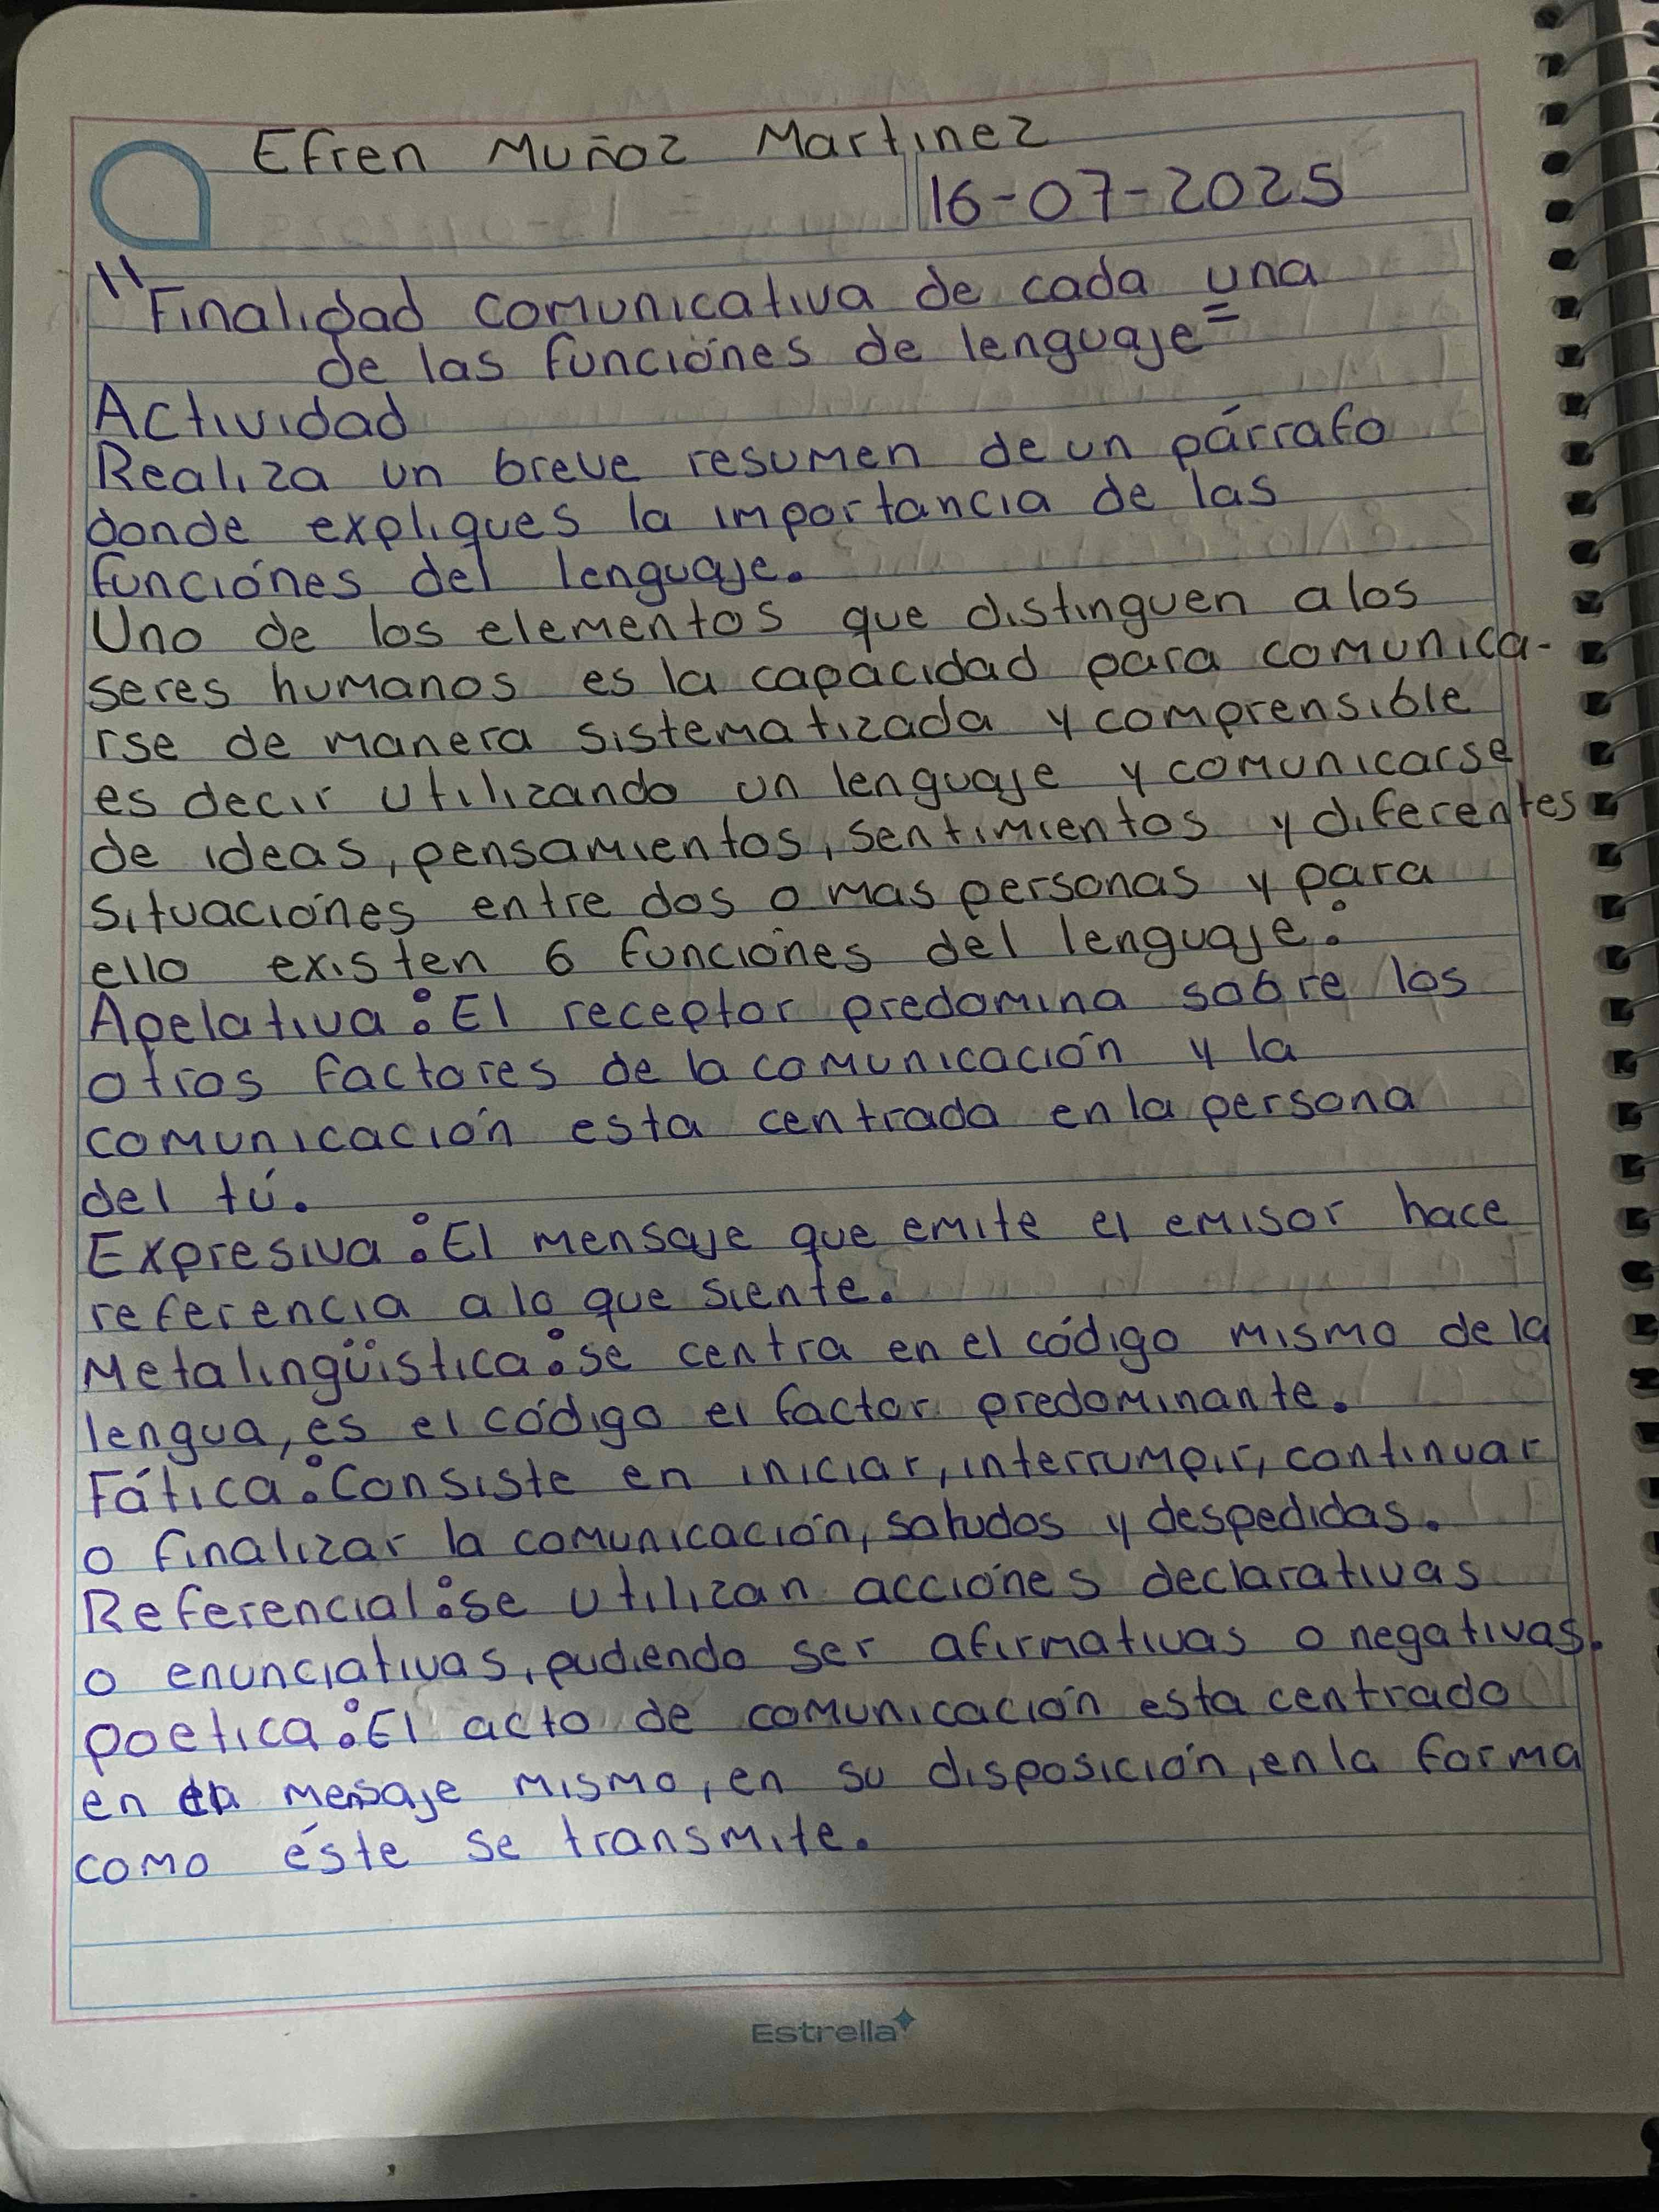 Efren Muñoz Martinez
16-07-2025
"Finalidad comunicativa de cada una
de las funciónes de lenguaje"
Actividad
Realiza un breve resumen de un párrafo
donde expliques la importancia de las
funciónes del lenguaje.
Uno de los elementos que distinguen a los
seres humanos es la capacidad para comunica-
rse de manera sistematizada y comprensible
es decir utilizando un lenguaje y comunicarse
de ideas, pensamientos, sentimientos y diferentes
situaciónes entre dos o mas personas y para
ello existen 6 funciones del lenguaje:
Apelativa: El receptor predomina sobre los
otros factores de la comunicación y la
comunicación esta centrada en la persona
del tú.
Expresiva: El mensaje que emite el emisor hace
referencia a lo que siente.
Metalingüistica: se centra en el código mismo de la
lengua, es el código el factor predominante.
Fática: Consiste en iniciar, interrumpir, continuar
o finalizar la comunicación, saludos y despedidas.
Referencial: se utilizan acciónes declarativas
o enunciativas, pudiendo ser afirmativas o negativas.
poetica: El acto de comunicación esta centrado
en mensaje mismo, en su disposición, en la forma
como éste se transmite.
Estrella